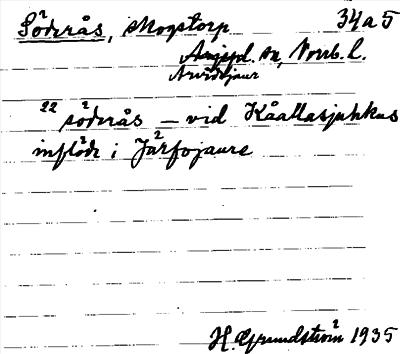 Söderås, skogstorp 34a5
Arvidsjaur sn, Norrb. l.
Arvidsjaur
22 söderås – vid Kåallasjuhkus
inflöde i Järfojaure
H. Grundström 1935